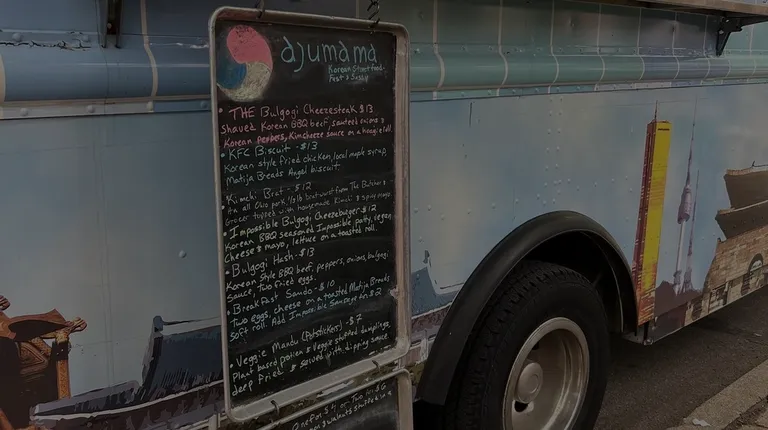 ajumama
Korean Street food
Fast & Sassy
• THE Bulgogi Cheezesteak $13
Shaved Korean BBQ beef, sauteed onions &
Korean peppers, Kimcheeze sauce on a hoagie roll.
• KFC Biscuit - $13
Korean style fried chicken, local maple syrup,
Matija Breads Angel biscuit.
• Kimchi Brat - $12
1/4 lb bratwurst from The Butcher &
Grocer topped with homemade Kimchi & spicy mayo
• Impossible Bulgogi Cheezeburger - $12
Korean BBQ seasoned Impossible patty, vegan
cheese & mayo, lettuce on a toasted roll.
• Bulgogi Hash - $13
Korean Style BBQ beef, peppers, onions, bulgogi
sauce, Two fried eggs.
• Breakfast Sando - $10
Two eggs, cheese on a toasted Matija Breads
Soft roll. Add Impossible Sausage for $2
• Veggie Mandu (Potstickers) - $7
Plant based protien & Veggie stuffed dumplings,
deep fried & served with dipping sauce
One For $4 or Two for $6
& walnuts stuffed in a